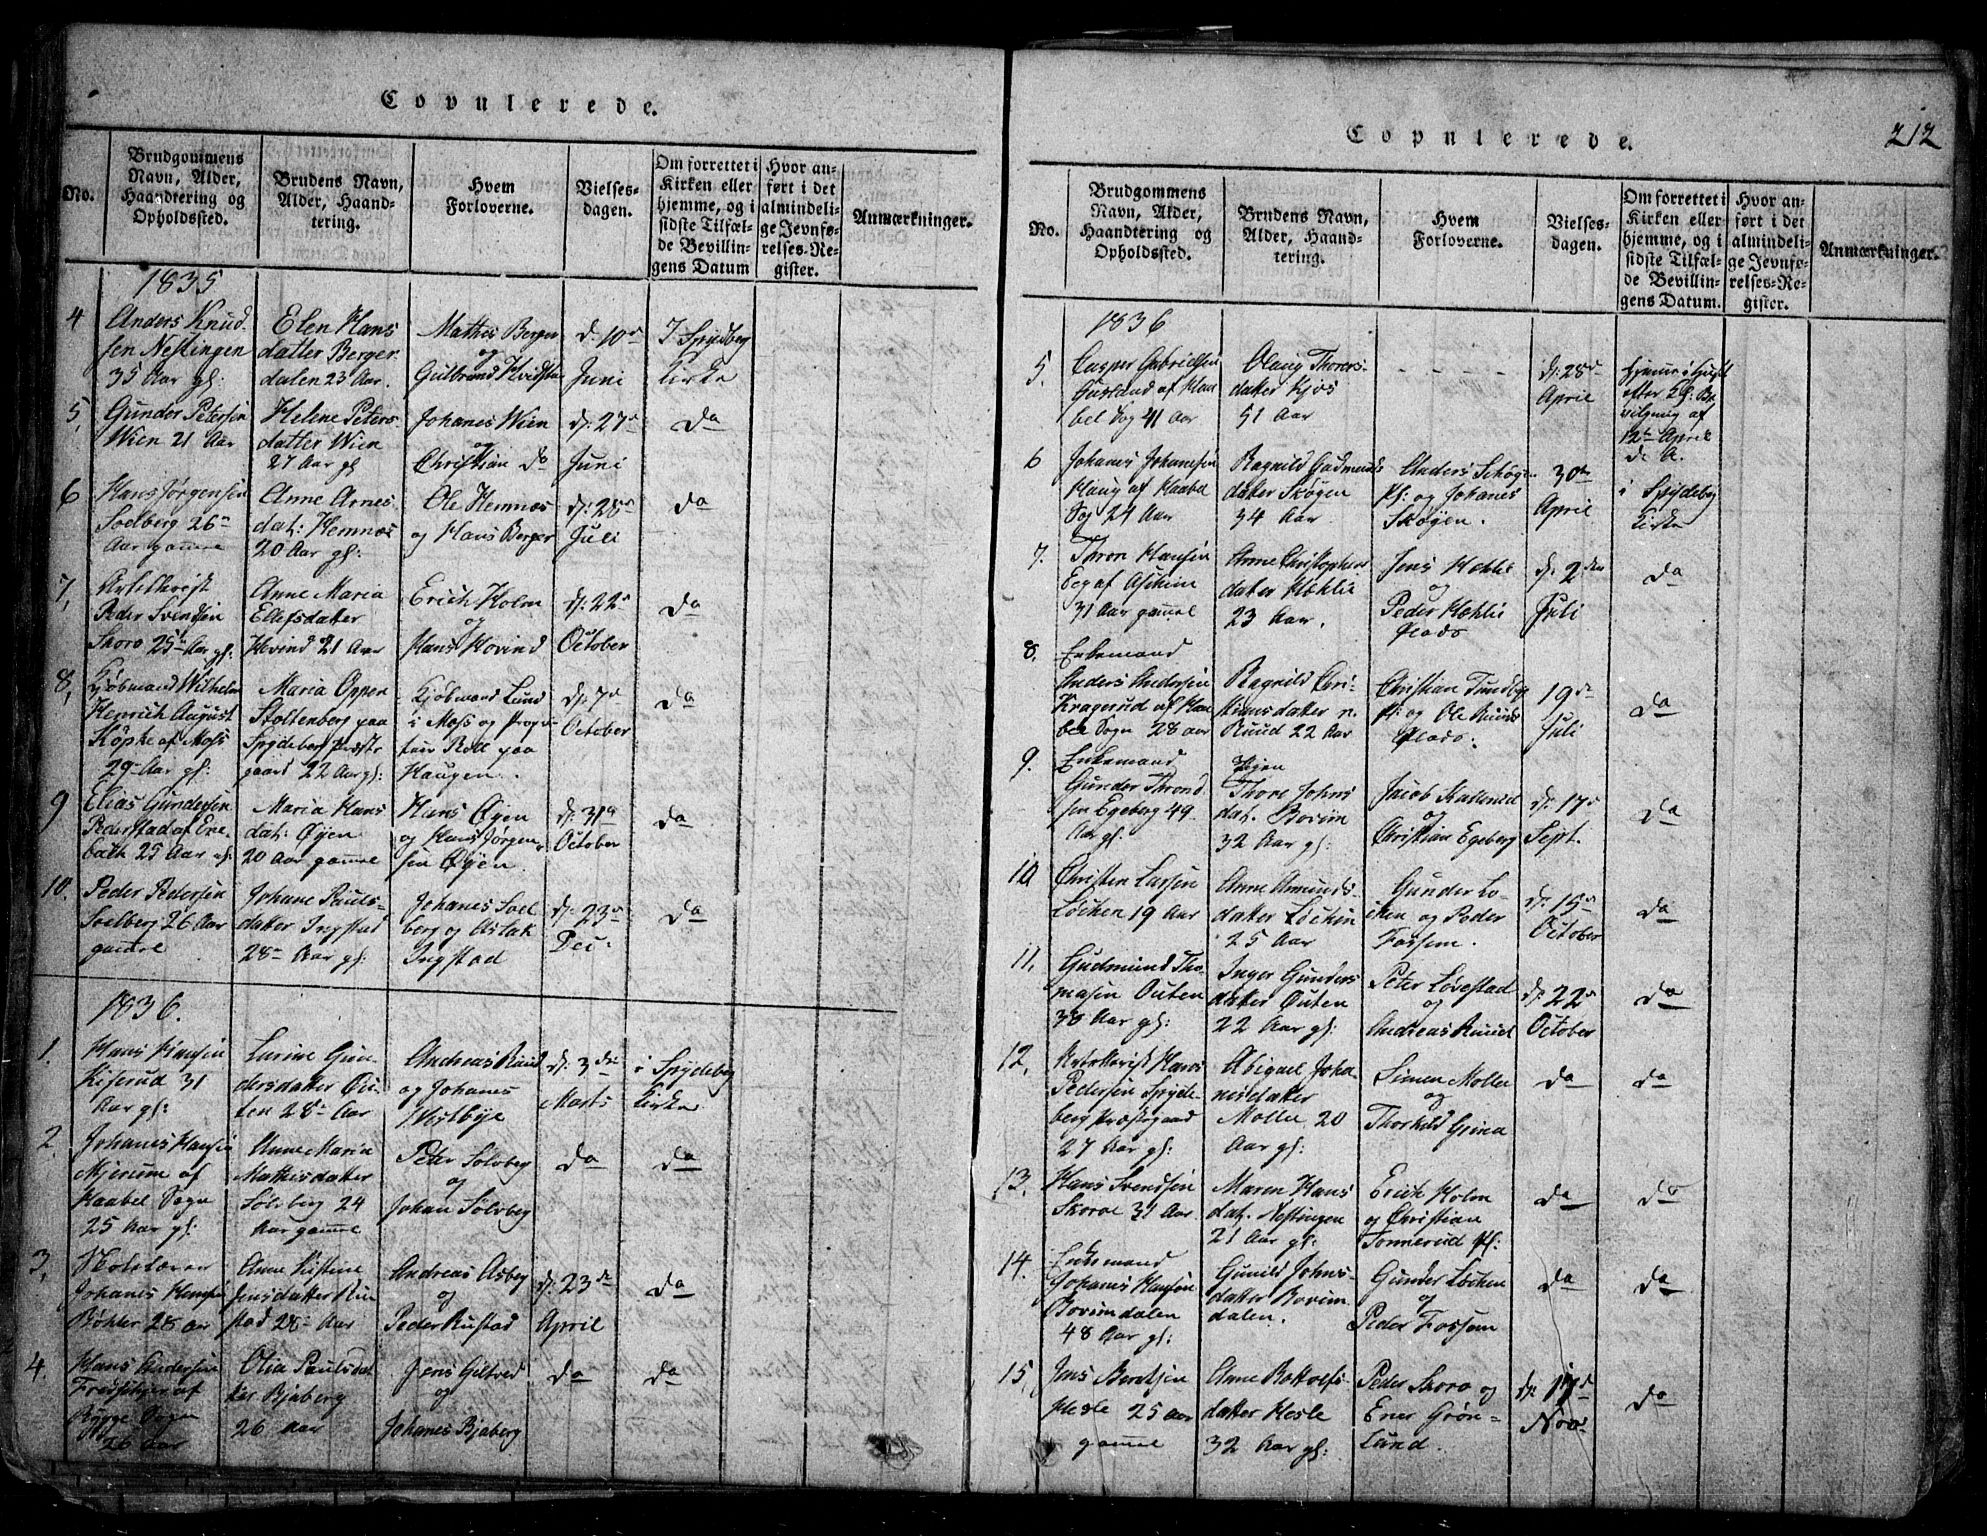 Copulerede.
No.
Brudgommens
Navn, Alder,
Haandtering og
Opholdssted.
Brudens Navn,
Alder, Haand-
tering.
Hvem
Forloverne.
Vielses-
dagen.
Om forrettet i
Kirken eller
hjemme, og i
sidste Tilfæl-
de Bevillin-
gens Datum
Hvor an-
ført i det
almindeli-
ge Jevnfø-
relses-Re-
gister.
Anmærkninger.
1835
4
Anders Knud
sen Nestingen
35 Aar gl:
Elen Hans
datter Berger
dalen 23 Aar.
Mathis Berger
og
Gulbrand Kvidsta
d: 10d
Juni
I Spydberg
Kirke
5,
Gunder Petersen
Wien 21 Aar
Helene Peters
datter Wien
27 Aar gl
Johanes Wien
og
Christian do
d: 27d
Juni
do
6
Hans Jørgensen
Soelberg 26
Aar gamle
Anne Arnes
dat: Hemnæs
20 Aar gl:
Ole Hemnæs
og Hans Berger
d: 28de
Juli
do
7,
Peder Svendsen
Skoro 25 Aar gl:
Anne Maria
Ellefsdatter
Hovind 21 Aar
Erich Holm
og
Hans Hovind
d: 22d
October
do
8,
Kjöbmand Wilhelm
Henrich August
Köpke af Moss
29 Aar gl:
Maria Oppen
Stoltenberg paa
Spydeberg Præste
gaard 22 Aar gl:
Kjöbmand Lund
i Moss og Procu
tur Roll paa
Haugen.
d: 7d
October
do
9
Elias Gundersen
Pederstad af Ene-
bakk 25 Aar gl:
Maria Hans
dat: Öyen
20 Aar gamle
Hans Öyen
og Hans Jörgen
sen Öyen
d: 31d
October
do
10.
Peder Pedersen
Soelberg 26 Aar
gamle
Johane Pauls-
datter Ingstad
28 Aar gl:
Johanes Soel
berg og Aslak
Ingstad
d: 23d
Dec:
do
1836.
1.
Hans Hansen
Kiserud 31
Aar gl:
Lurine Gun
dersdatter Ou
ten 28 Aar
Andreas Ruud
og Johanes
Westbye
d: 3die
Marts
i Spydeberg
Kirke
2.
Johanes Hansen
Mjerum af
Haabel Sogn
25 Aar gl:
Anne Maria
Mathisdatter
Solberg 24
Aar gamle
Peter Solberg
og
Johan Solberg
do
do
3,
Johanes Hansen
Böhler 28 aar
Anne Kistine
Jensdatter Ru
stad 28 Aar
Andreas Asberg
og
Peder Rustad
d: 23de
April
do
4.
Hans Andersen
af
Rygge Sogn
26 aar
Olia Paulsdat
ter Bjaberg
26 aar
Jens Giltved
og
Johanes Bjaberg
do
do
Copulerede.
212
No.
Brudgommens
Navn, Alder,
Haandtering og
Opholdssted.
Brudens Navn,
Alder, Haand-
tering.
Hvem
Forloverne.
Vielses-
dagen.
Om forrettet i
Kirken eller
hjemme, og i
sidste Tilfæl-
de Bevillin-
gens Datum.
Hvor an-
ført i det
almindeli-
ge Jevnfø-
relses-Re-
gister.
Anmærkninger.
1836
5.
Casper Gabrielsen
af Haa
bel Sog 41 Aar
Olaug Thores-
datter Kjos
51 Aar
- - - - -
d: 28d
April
hjemme i Huset
efter
vilgning af
12te April
d. A.
6
Johanes Johansen
Haug af Haabel
Sog 24 Aar
Ragnild Gudmunds
datter Skogen
34 Aar
Anders Skogen
pl: og Johanes
Skogen.
30te
April
i Spydeberg
Kirke
7.
Thron Hansen
Eeg af Aschim
31 Aar gamel
Anne Christophers
datter Hæhlie
23 Aar.
Jens Hæhlie
og
Peder Hæhlie
Plads
d: 2den
Juli
do
8.
Enkemand
Anders Andersen
Kragerud af Haa
bel Sogn 28 aar
Ragnild Chri-
stiansdatter n.
Ruud 22 Aar
Christian Tundby
pl: og Ole Ruuds
Plads.
19de
Juli
do
9.
Enkemand
Gunder Thrond
sen Egeberg 49
Aar gl:
Pigen
Thore Johns
dat. Bovim
32 Aar gl:
Jacob
og
Christian Egeberg
d: 17d
Sept.
do
10
Christen Larsen
Löchen 19 Aar
Anne Amunds-
datter Löchen
25 Aar
Gunder Lö-
chen og Peder
Fossem.
d: 15d
October
do
11,
Gudmund Tho-
masen Outen
38 Aar gl:
Inger Gunders
datter Outen
22 Aar gl:
Peter Lövestad
og
Andreas Ruud
d: 22d
October
do
12,
Hans
Pedersen Spyde-
berg Præstegaard
27 Aar gl:
Abigael Joha-
nisdatter
Molle 20
Aar gl:
Simen Molle
og
Thorkild Grina
do
do
13.
Hans Svendsen
Skoroe 31 Aar
Maren Hans
dat. Nestingen
21 Aar gl:
Erich Holm
og Christian
Tonnerud pl:
do
do
14.
Enkemand
Johanes Hansen
Bovimdalen
48 Aar gl:
Gunild Johns-
datter Bovim
dalen.
Gunder Löchen
og
Peder Fossem
do
do
15
Jens Berntsen
Hesle 25 aar
gamel
Anne Rottolfs
datter Hesle
32 Aar gl:
Peder Skoro og
Ener Grön-
Lund.
d: 17d
Nov:
do